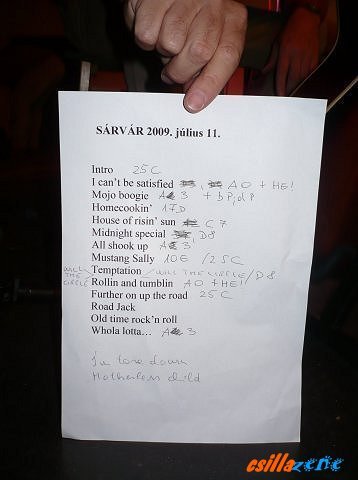 SÁRVÁR 2009. július 11.
Intro 25C
I can't be satisfied A0 + HE!
Mojo boogie A 3 + bP;dP
Homecookin' 17D
House of risin' sun C7
Midnight special D8
All shook up A 3
Mustang Sally 10E /25C
WILL THE CIRCLE Temptation / WILL THE CIRCLE / D8
Rollin and tumblin A0 + HE!
Further on up the road 25C
Road Jack
Old time rock'n roll
Whola lotta... A 3
down
Motherless child
csillazene